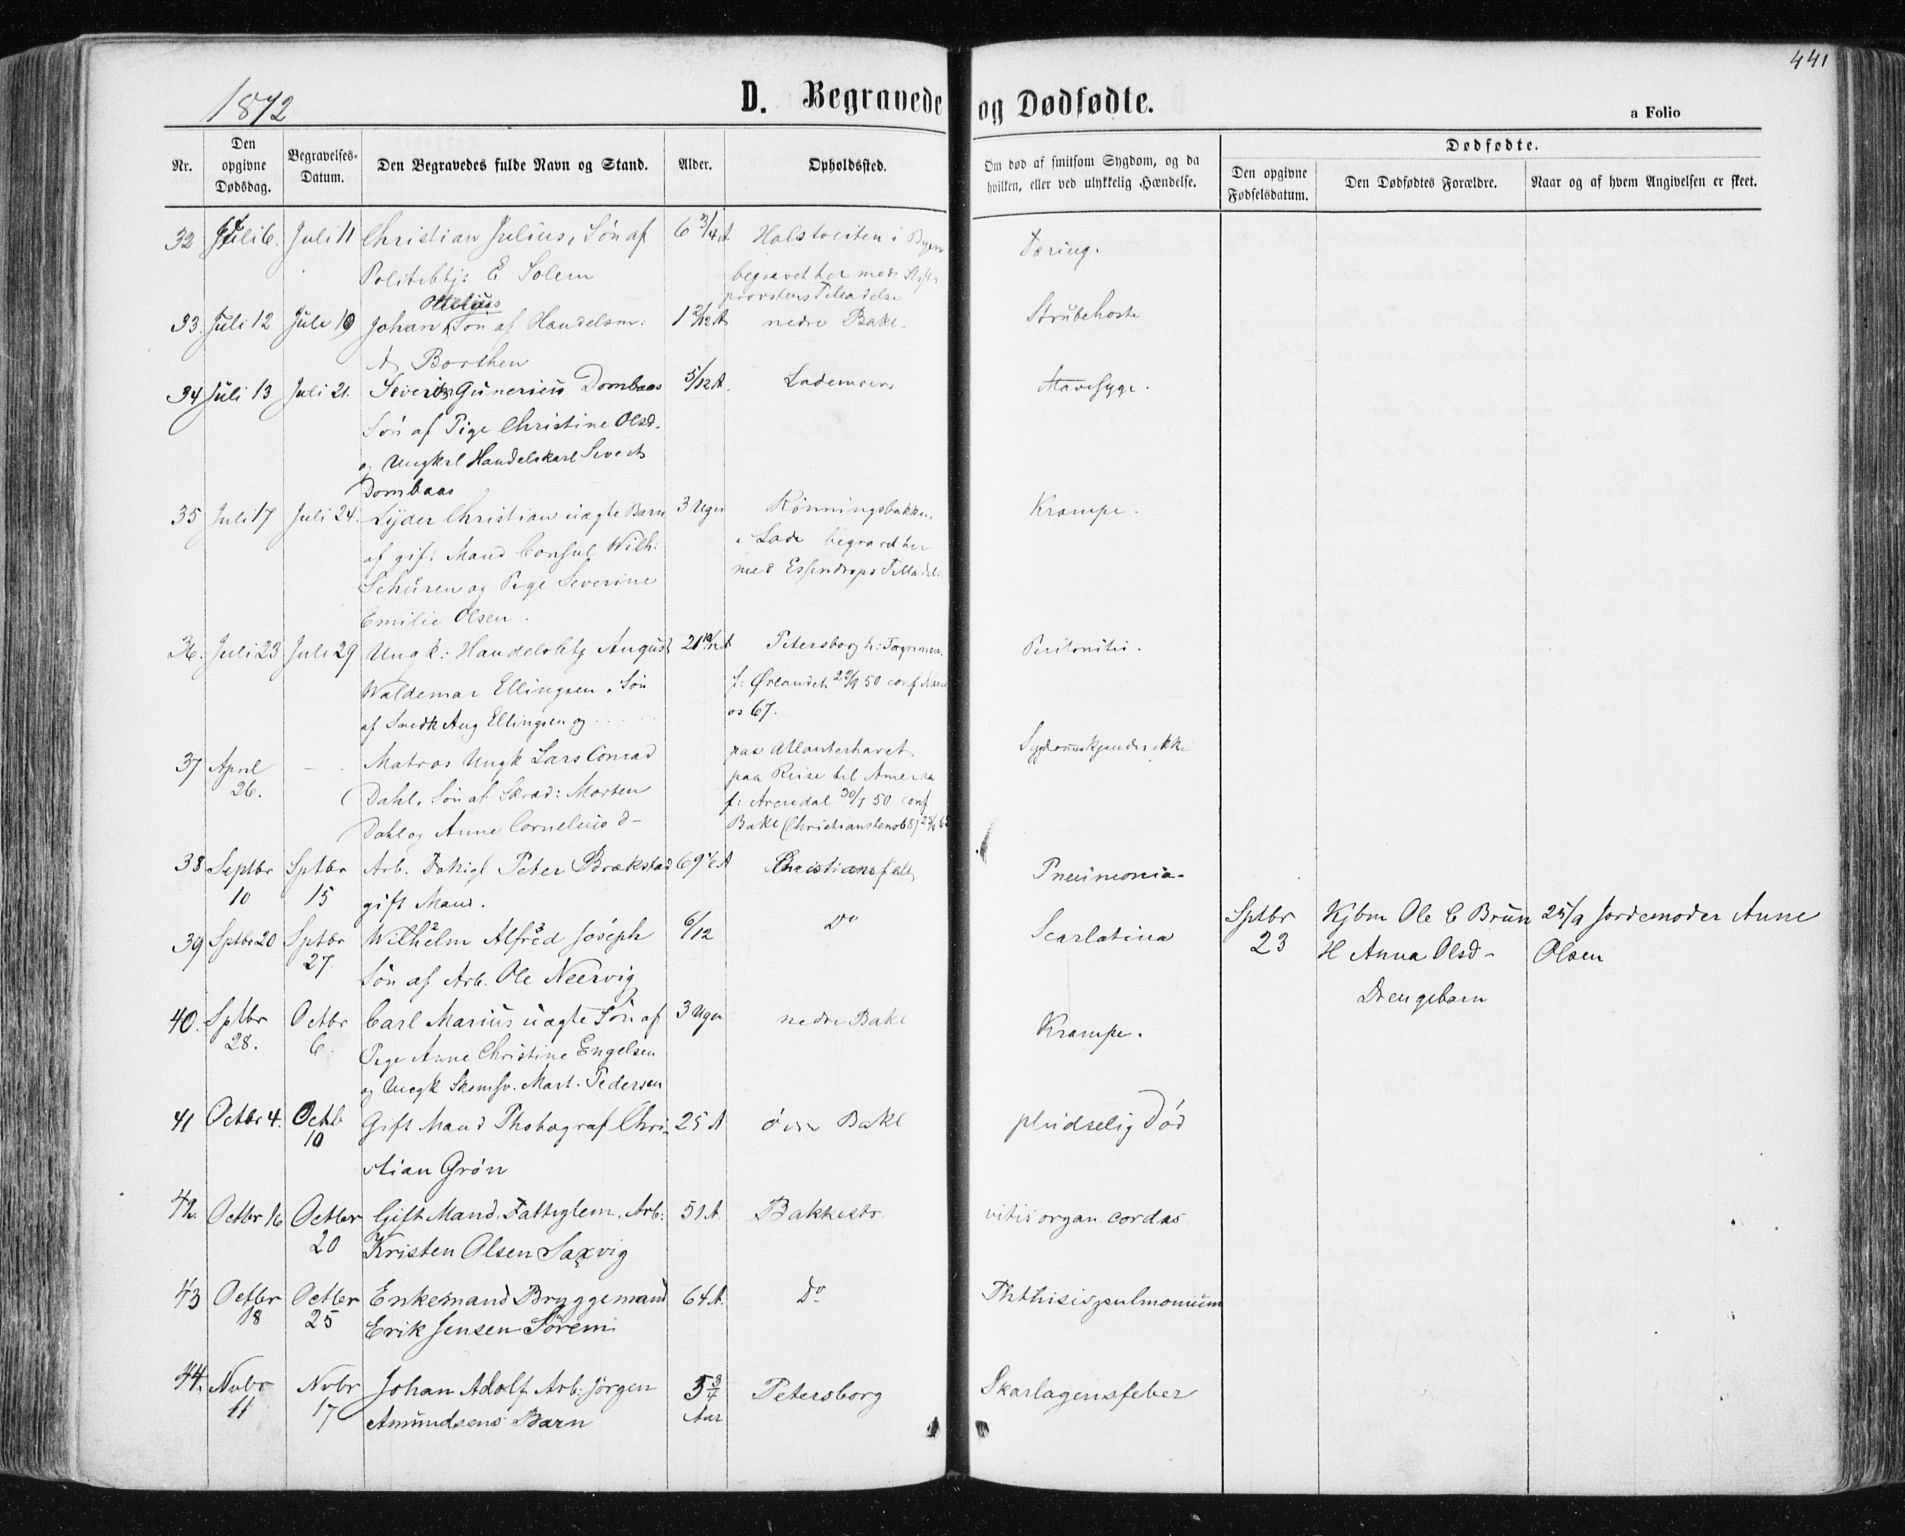 441
1872
D. Begravede og Dødfødte.
a Folio
Nr.
Den opgivne Dødsdag.
Begravelses-Datum.
Den Begravedes fulde Navn og Stand.
Alder.
Opholdssted.
Om død af smitsom Sygdom, og da hvilken, eller ved ulykkelig Hændelse.
Dødfødte.
Den opgivne Fødselsdatum.
Den Dødfødtes Forældre.
Naar og af hvem Angivelsen er skeet.
32 Juli 6. Juli 11 Christian Julius, Søn af 6 3/4 A Halstveiten i Byen Tæring.
Politibtj: E Solem begravet her med Stifts
provstens Tilladelse
Ottelius
33. Juli 12 Juli 19 Johan, Søn af Handelsm: 1 2/12 A nedre Bakl. Strubehoste
A Borthen
34 Juli 13 Juli 21. Severin Gunerius Dombaas 5/12 A. Lademoen Mavesyge.
Søn af Pige Christine Olsd.
og Ungkrl Handelskarl Sivert
Dombaas
35 Juli 17 Juli 24. Lyder Christian uægte Barn 3 Uger Rønningsbakken Krampe.
af gift Mand Consul Wilh: i Lade begravet her
Schüren og Pige Severine med Essendrops Tillad.
Emilie Olsen.
36. Juli 23 Juli 29 Ungk: Handelsbtj August 21 10/12 A Petersborg Peritonitis.
Waldemar Ellingsen, Søn f: Ørlandet 29/9 50 conf
af Smedk Aug Ellingsen og . . . . . . 67.
37 April 26. — Matros Ungk Lars Conrad paa Atlanterhavet Sygdommen kjendes ikke
Dahl, Søn af Skræd: Morten paa Reise til Amerika
f: Arendal 30/1 50 conf
Dahl og Anne Cornelius d— Bakl (Christiansten
38 Septbr 10 Sptbr 15 Arb. Peter Brækstad 69 1/2 A Christiansfeldt Pneumonia.
gift Mand.
39 Sptbr 20 Sptbr 27. Wilhelm Alfred Joseph 6/12 Do Scarlatina Sptbr 23 Kjbm Ole C Brun 25/9 Jordemoder Anne
Søn af Arb. Ole Neervig H Anna Olsd— Olsen
Drengebarn
40. Sptbr 28. Octbr 6. Carl Marius uægte Søn af 3 Uger nedre Bakl Krampe.
Pige Anne Christine Engelsen
og Ungk Skomsv. Mart. Pedersen
41 Octbr 4. Octb 10 Gift Mand Photograf Chri- 25 A øvre Bakl pludselig Død
stian Grøn
42. Octbr 16 Octbr 20 Gift Mand. Fattiglem. Arb: 51 A Bakkestr. vitis organ. cordes
Kristen Olsen Saxvig
43 Octbr 18 Octbr 25 Enkemand Bryggemand 64 A. Do Phthisis pulmonium
Erik Jensen Sørem
44. Nvbr 11 Nvbr 17 Johan Adolf Arb: Jørgen 5 3/4 Aar Petersborg Skarlagensfeber
Amundsens Barn